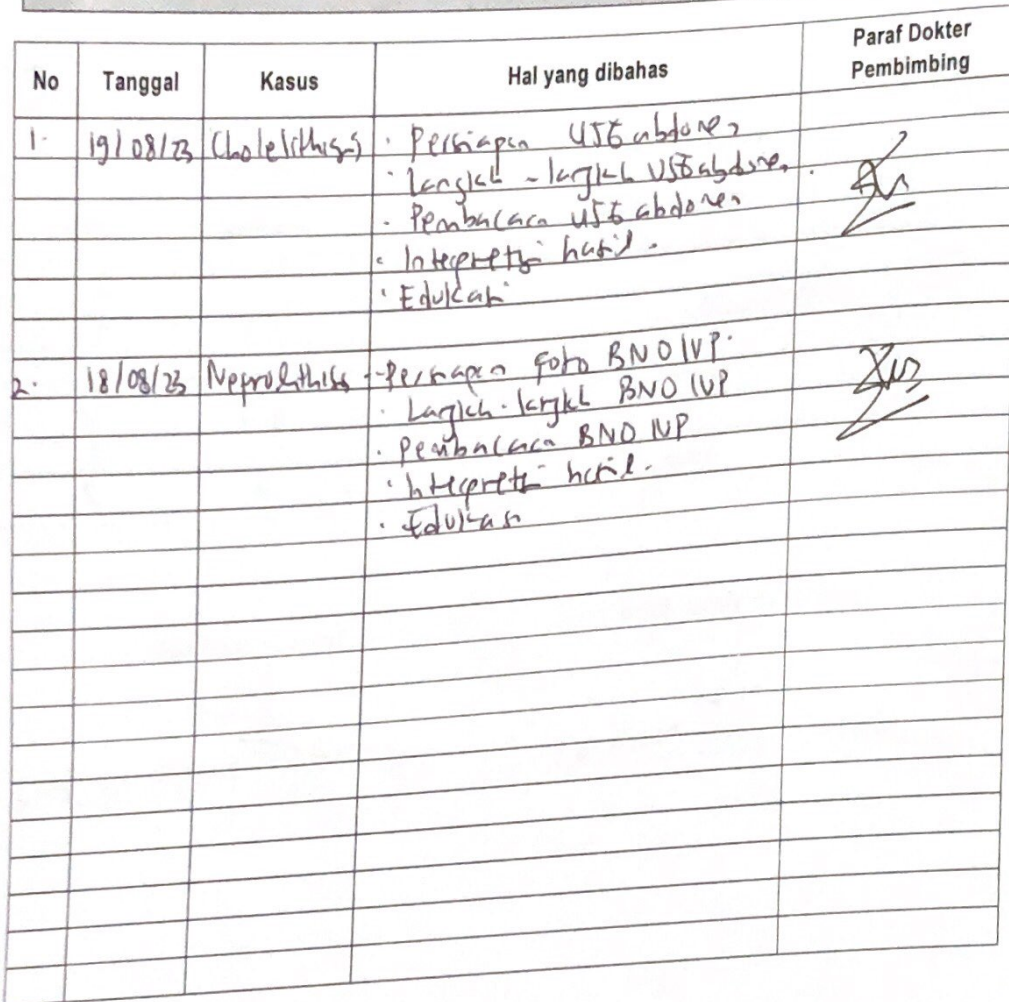 No Tanggal Kasus Hal yang dibahas Paraf Dokter Pembimbing
1. 19/08/23 Cholelithiasis · Persiapan USG abdomen
· Langkah - langkah USG abdomen.
· Pembacaan USG abdomen
· Interpretasi hasil.
· Edukasi
2. 18/08/23 Neprolithiasis - Persiapan foto BNO IVP.
· Langkah - langkah BNO IVP
· Pembacaan BNO IVP
· Interpretasi hasil.
· Edukasi